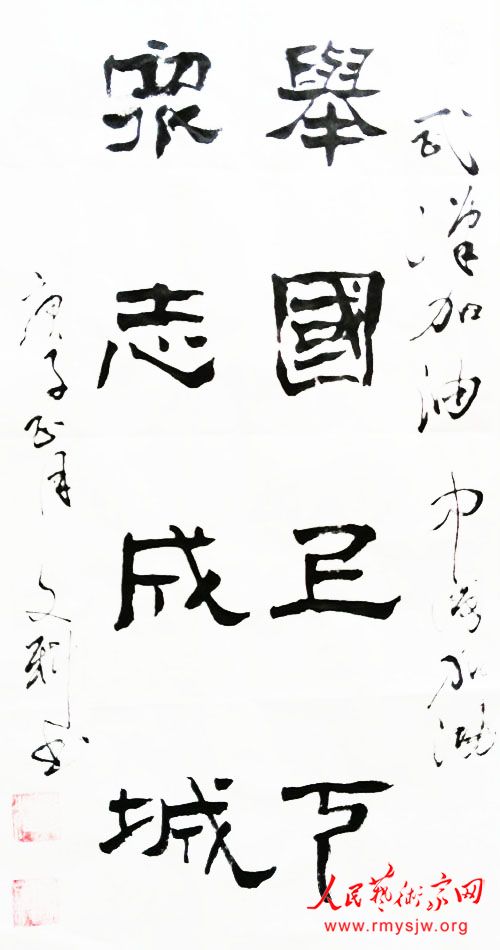 武漢加油 中國加油
舉國上下
眾志成城
庚子正月 文書
人民藝術家网
www.rmysjw.org